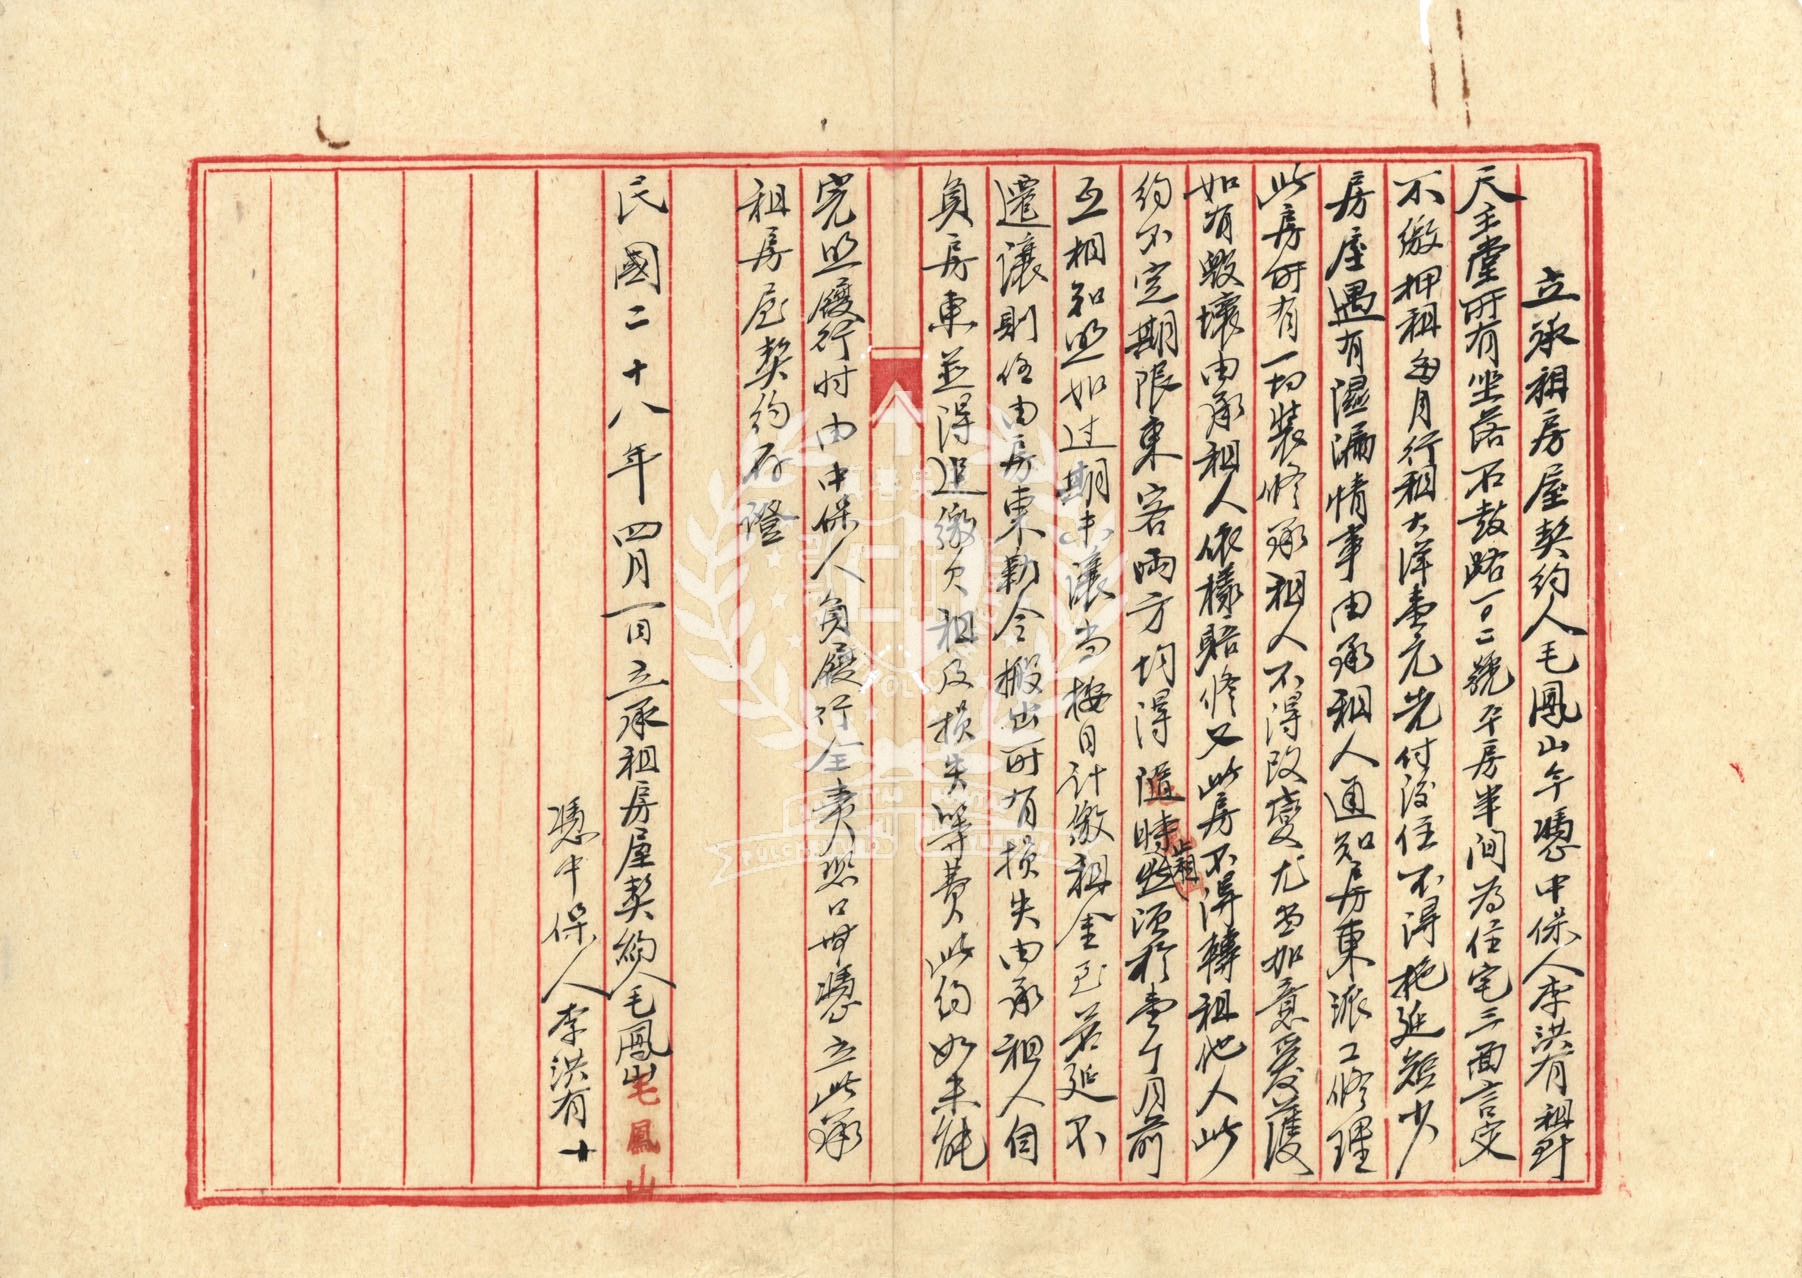 立承租房屋契約人毛鳳山今憑中保人李洪有租到
天主堂所有坐落石鼓路一〇二號平房半间為住宅三面言定
不繳押租每月行租大洋壹元先付後住不得拖延短少
房屋遇有濕漏情事由承租人通知房東派工修理
此房所有一切裝修承租人不得改變尤当加意爱護
如有毁壞由承租人依樣賠修又此房不得轉租他人此
約不定期限東客両方均得隨時退租然须於壹个月前
互相知照如过期未讓当按日计缴租金至若延不
遷讓則任由房東勒令搬出所有損失由承租人自
負房東並得追繳欠租及損失等費此約如未能
完照履行时由中保人負履行全責恐口無憑立此承
租房屋契約存證
民國二十八年四月一日立承租房屋契約人毛鳳山
毛鳳山
憑中保人李洪有十